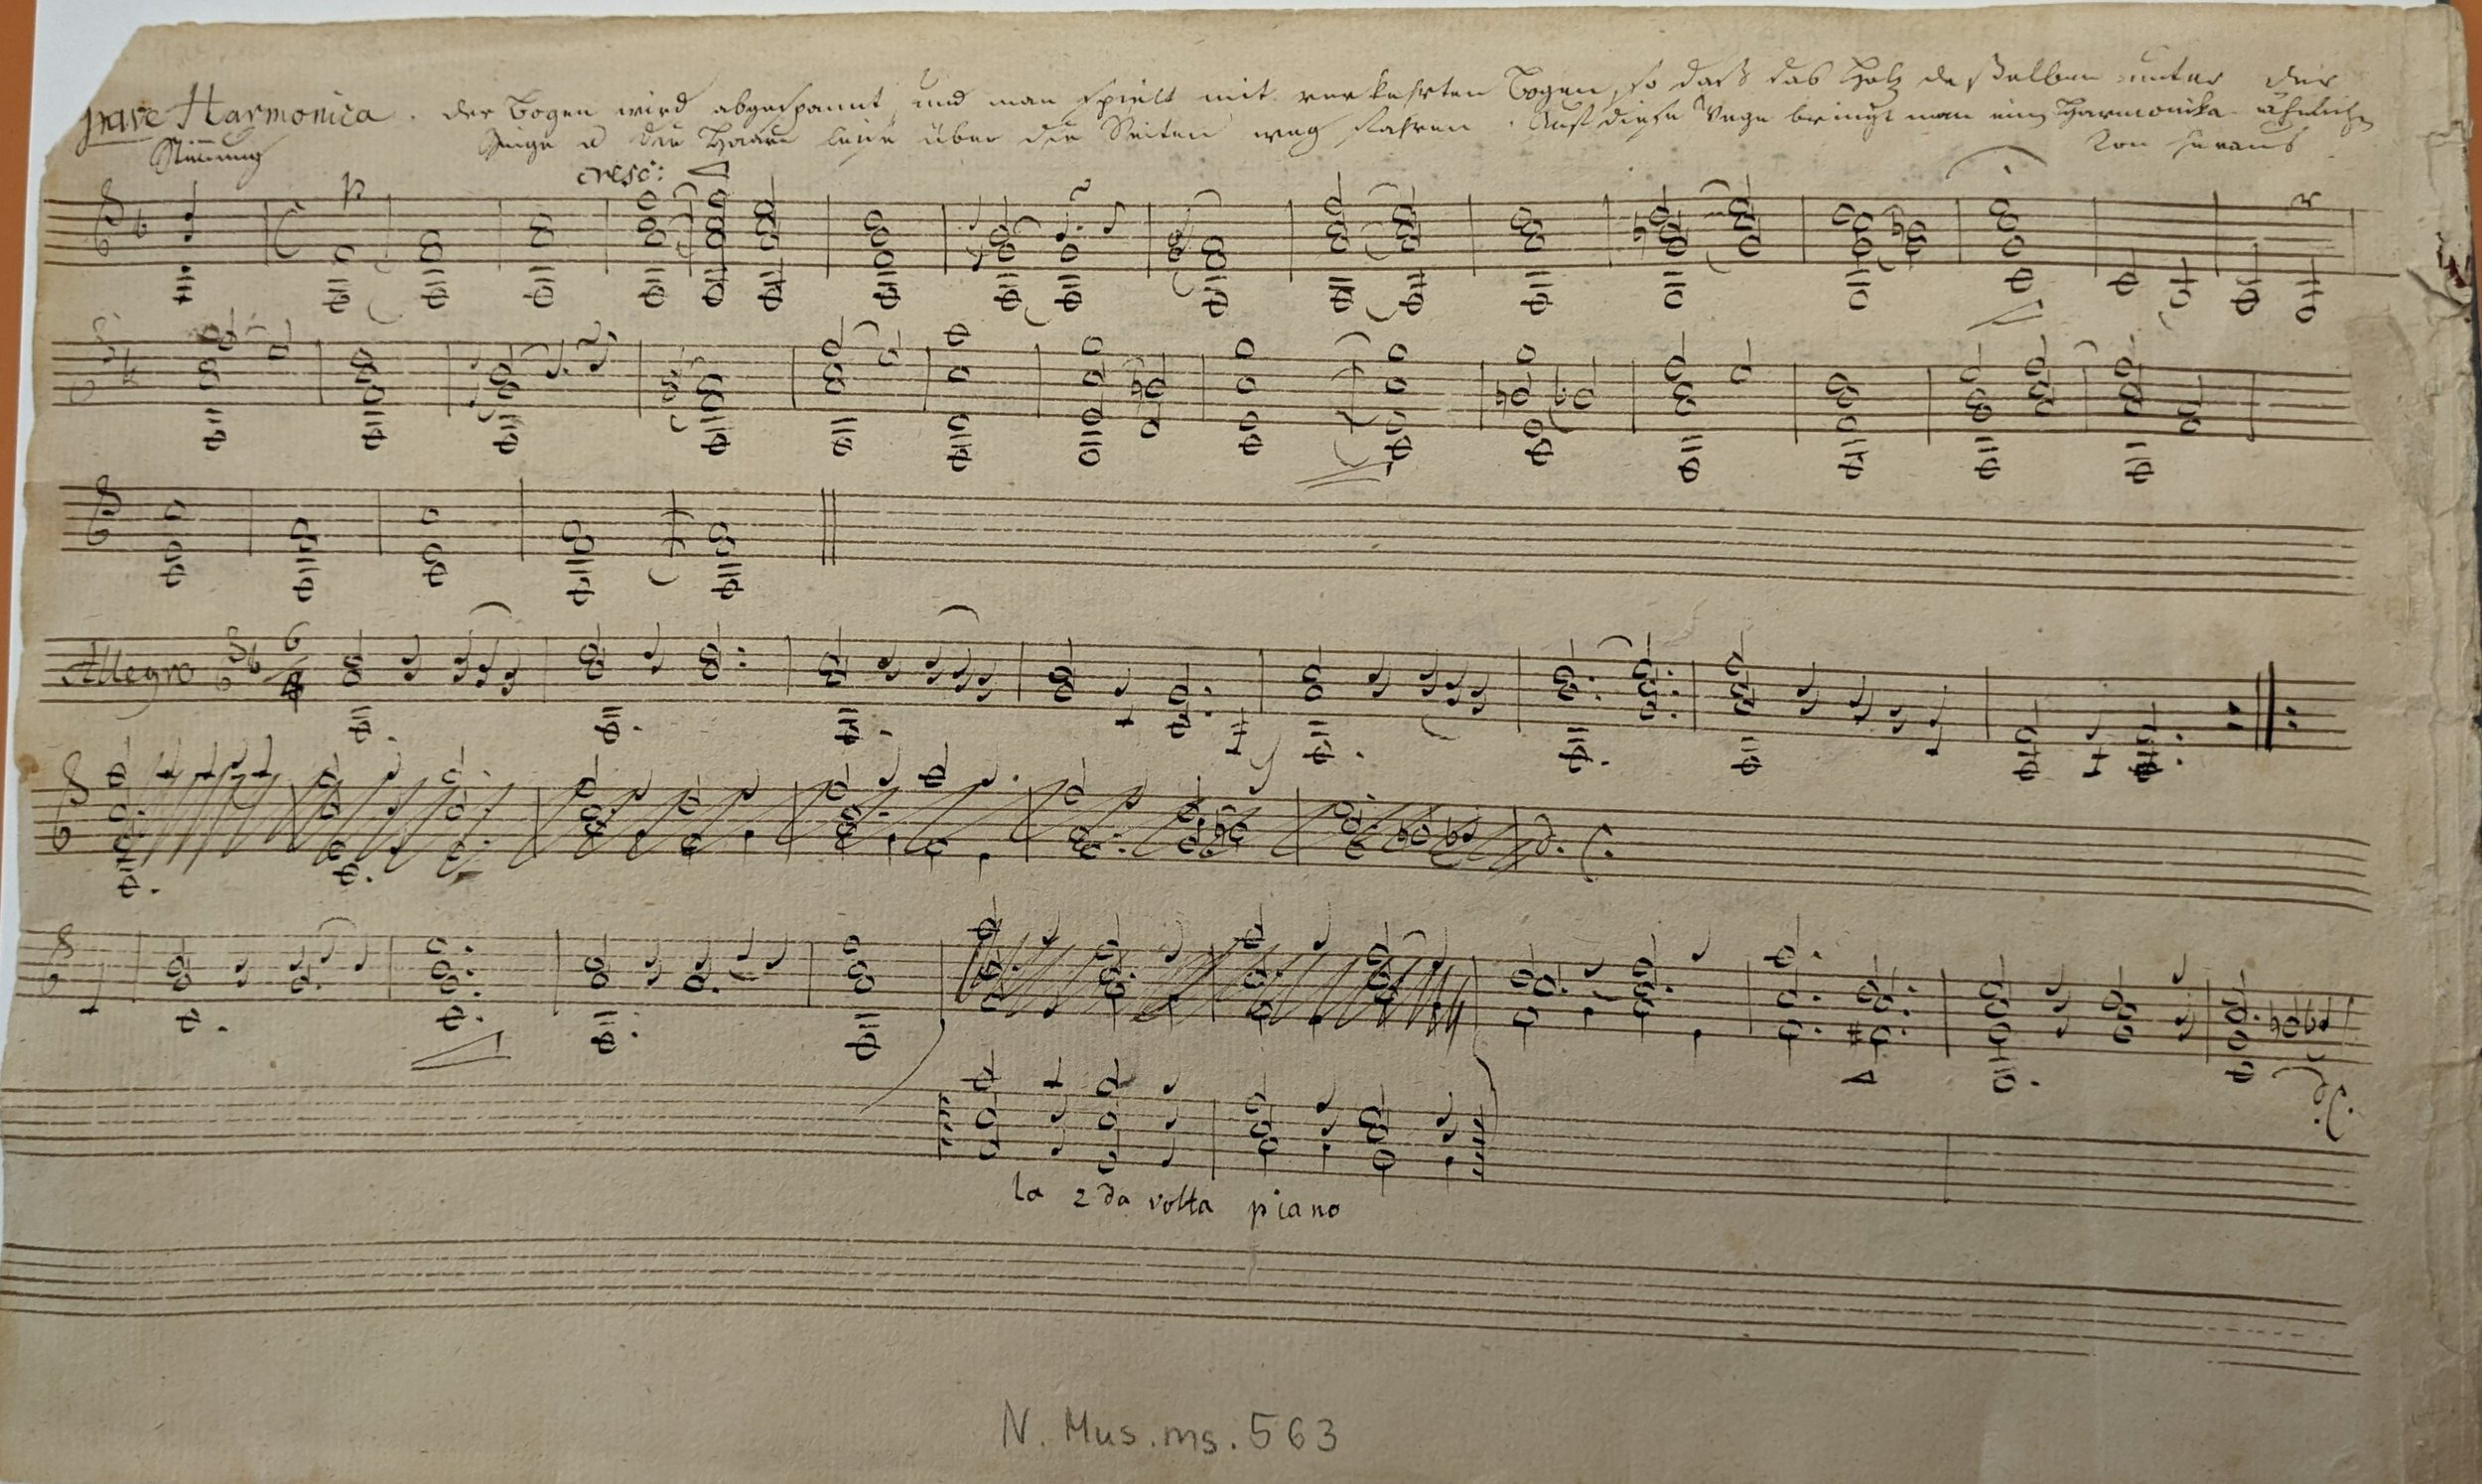 grave Harmonica. der Bogen wird abgespannt, und man spielt mit verkehrten Bogen, so daß das Holz deßelben unter der
Geige u die Haare leise über die Seiten weg fahren. Auf diese Wege bringt man ein Harmonika ähnlichen
Stimmung
Ton heraus
cresc:
p
Allegro 6/4
la 2da volta piano
N. Mus. ms. 563